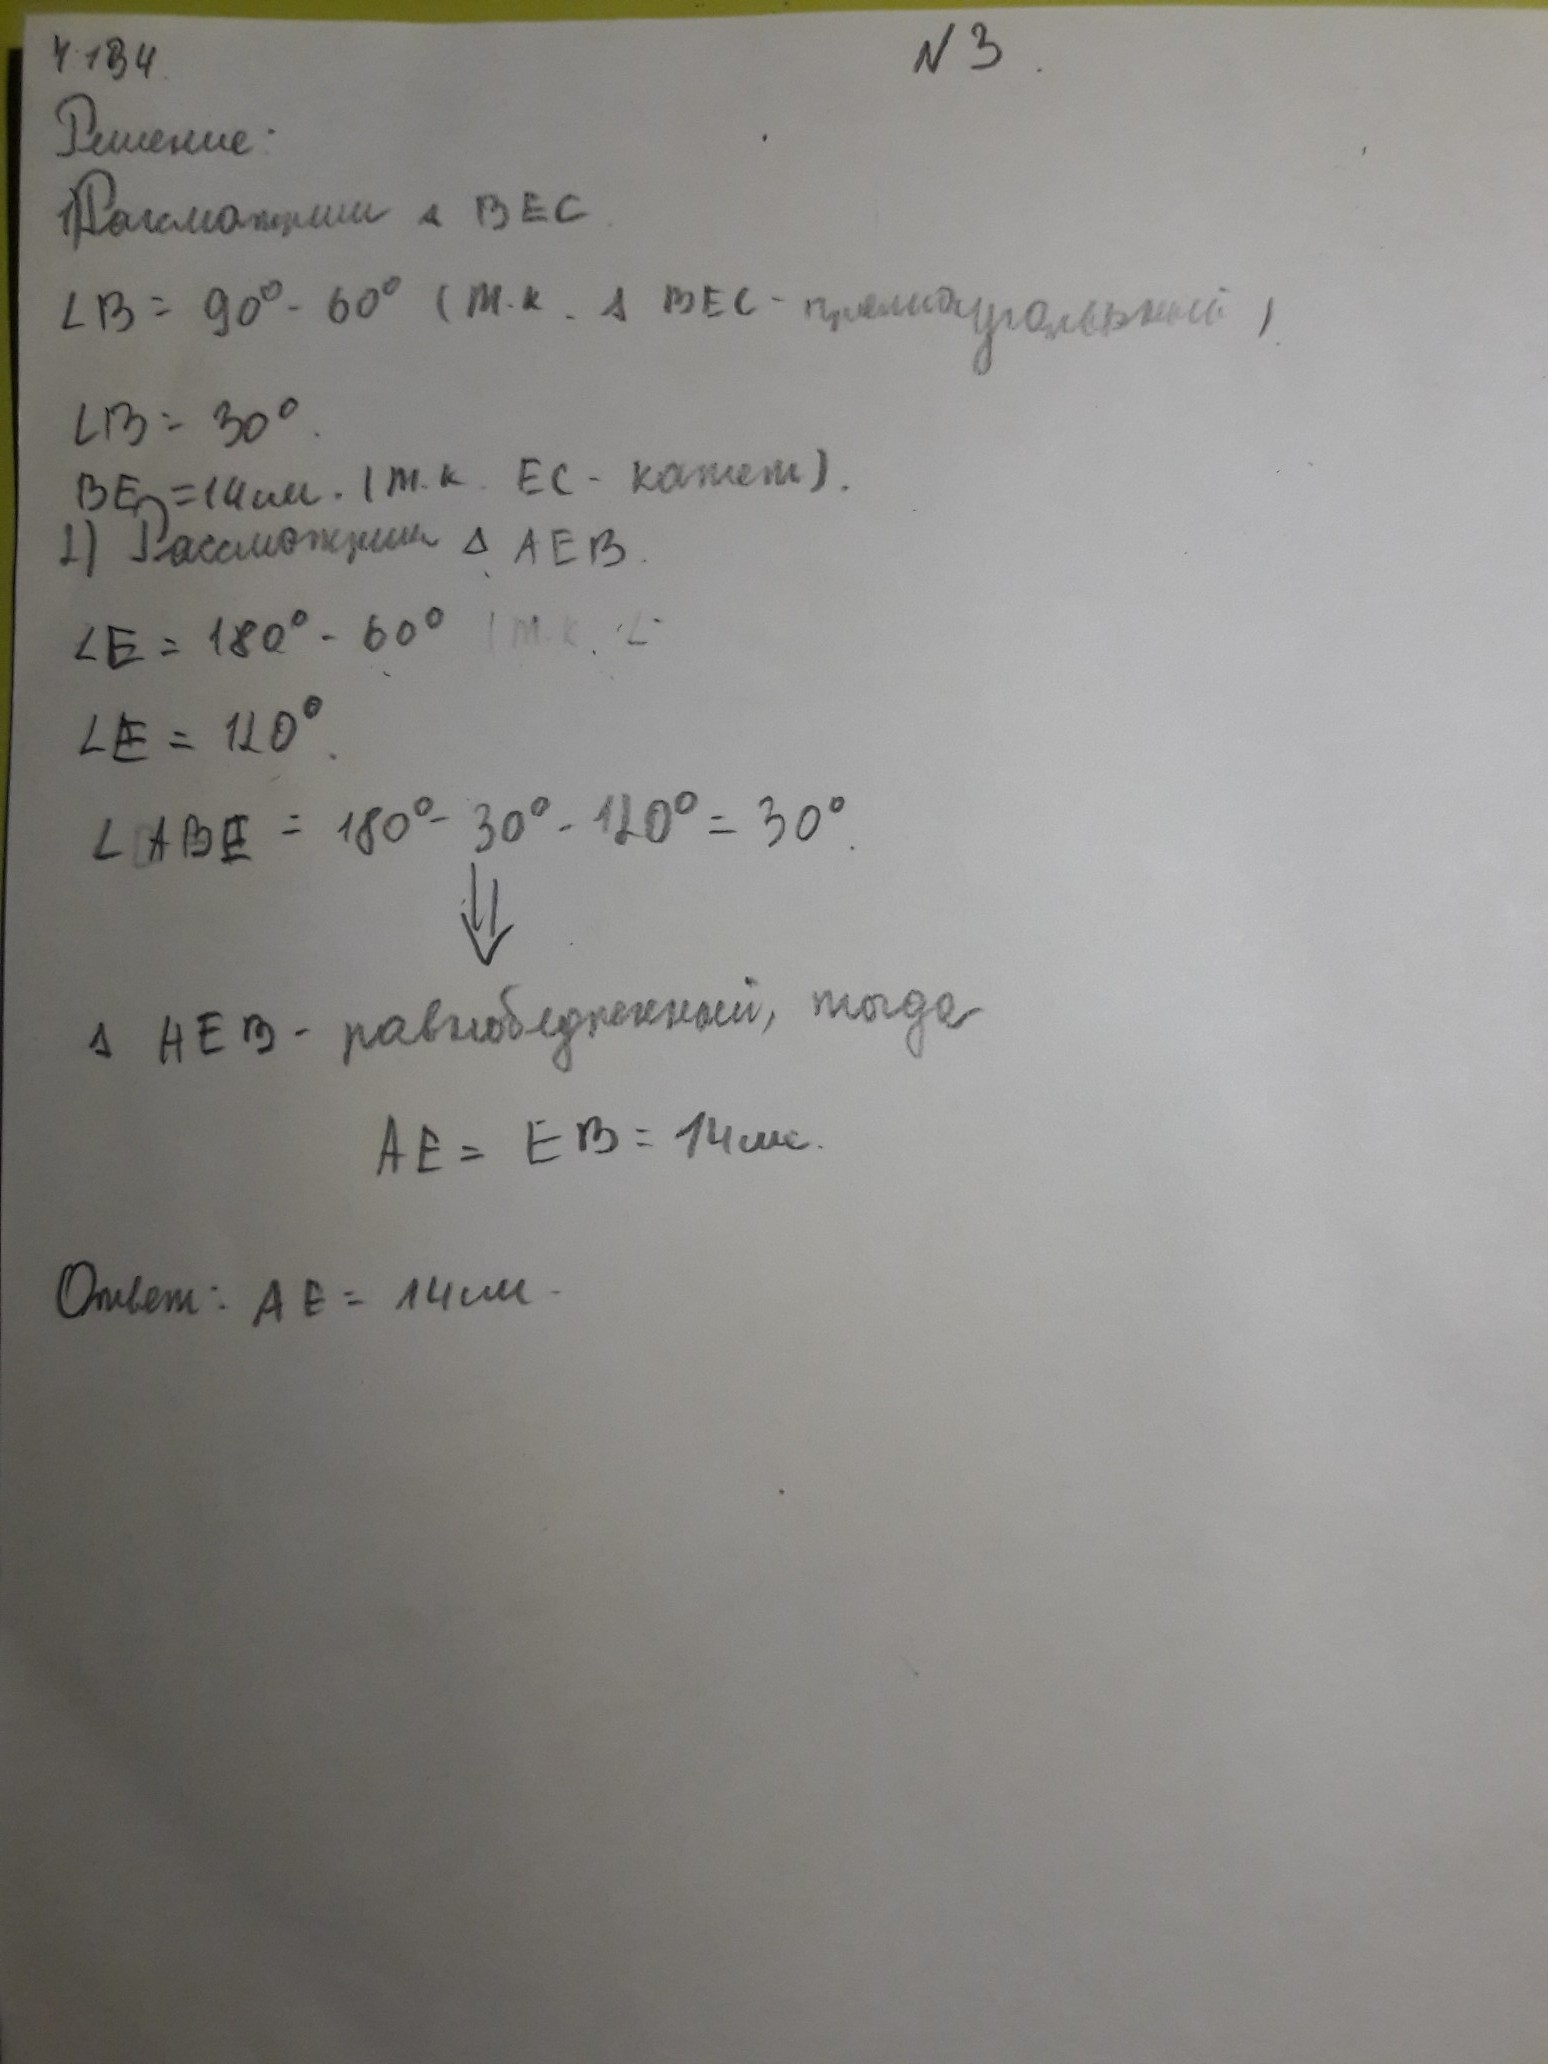 N 3.
Решение:
1) Рассмотрим △ BEC.
∠B = 90° - 60° (т.к. △ BEC - прямоугольный)
∠B = 30°.
BE = 14 см. (т.к. EC - катет).
2) Рассмотрим △ AEB.
∠E = 180° - 60° (т.к. ∠
∠E = 120°.
∠ ABE = 180° - 30° - 120° = 30°.
⇓
△ AEB - равнобедренный, тогда
AE = EB = 14 см.
Ответ: AE = 14 см.